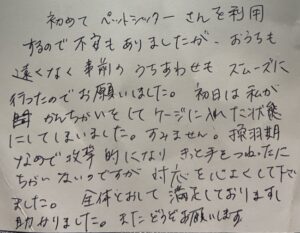 初めてペットシッターさんを利用
するので不安もありましたが、おうちも
遠くなく事前のうちあわせもスムーズに
行ったのでお願いしました。初日は私が
かんちがいをしてケージに入れた状態
にしてしまいました。すみません。探羽期
なので攻撃的になり きっと手をつねったに
ちがいないのですが 対応を心よくして下さい
ました。全体とおして満足しておりますし
助かりました。またどうぞお願いします